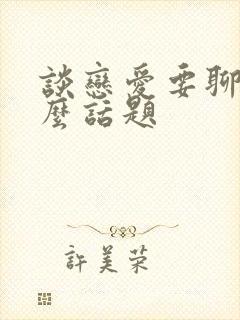 談戀愛要聊
麼話題
許美榮